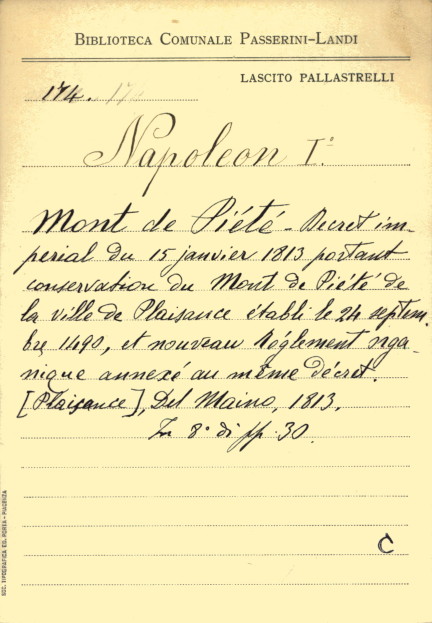 BIBLIOTECA COMUNALE PASSERINI-LANDI
LASCITO PALLASTRELLI
174. 174
Napoleon I.º
Mont de Piété - Decret im-
perial du 15 janvier 1813 portant
conservation du Mont de Piété de
la ville de Plaisance établi le 24 septem.
bre 1490, et nouveau Réglement rga-
nique annexé au même décret.
[Plaisance], Del Maino, 1813.
In 8º di pp. 30.
C
SOC. TIPOGRAFICA ED. PORTA - PIACENZA